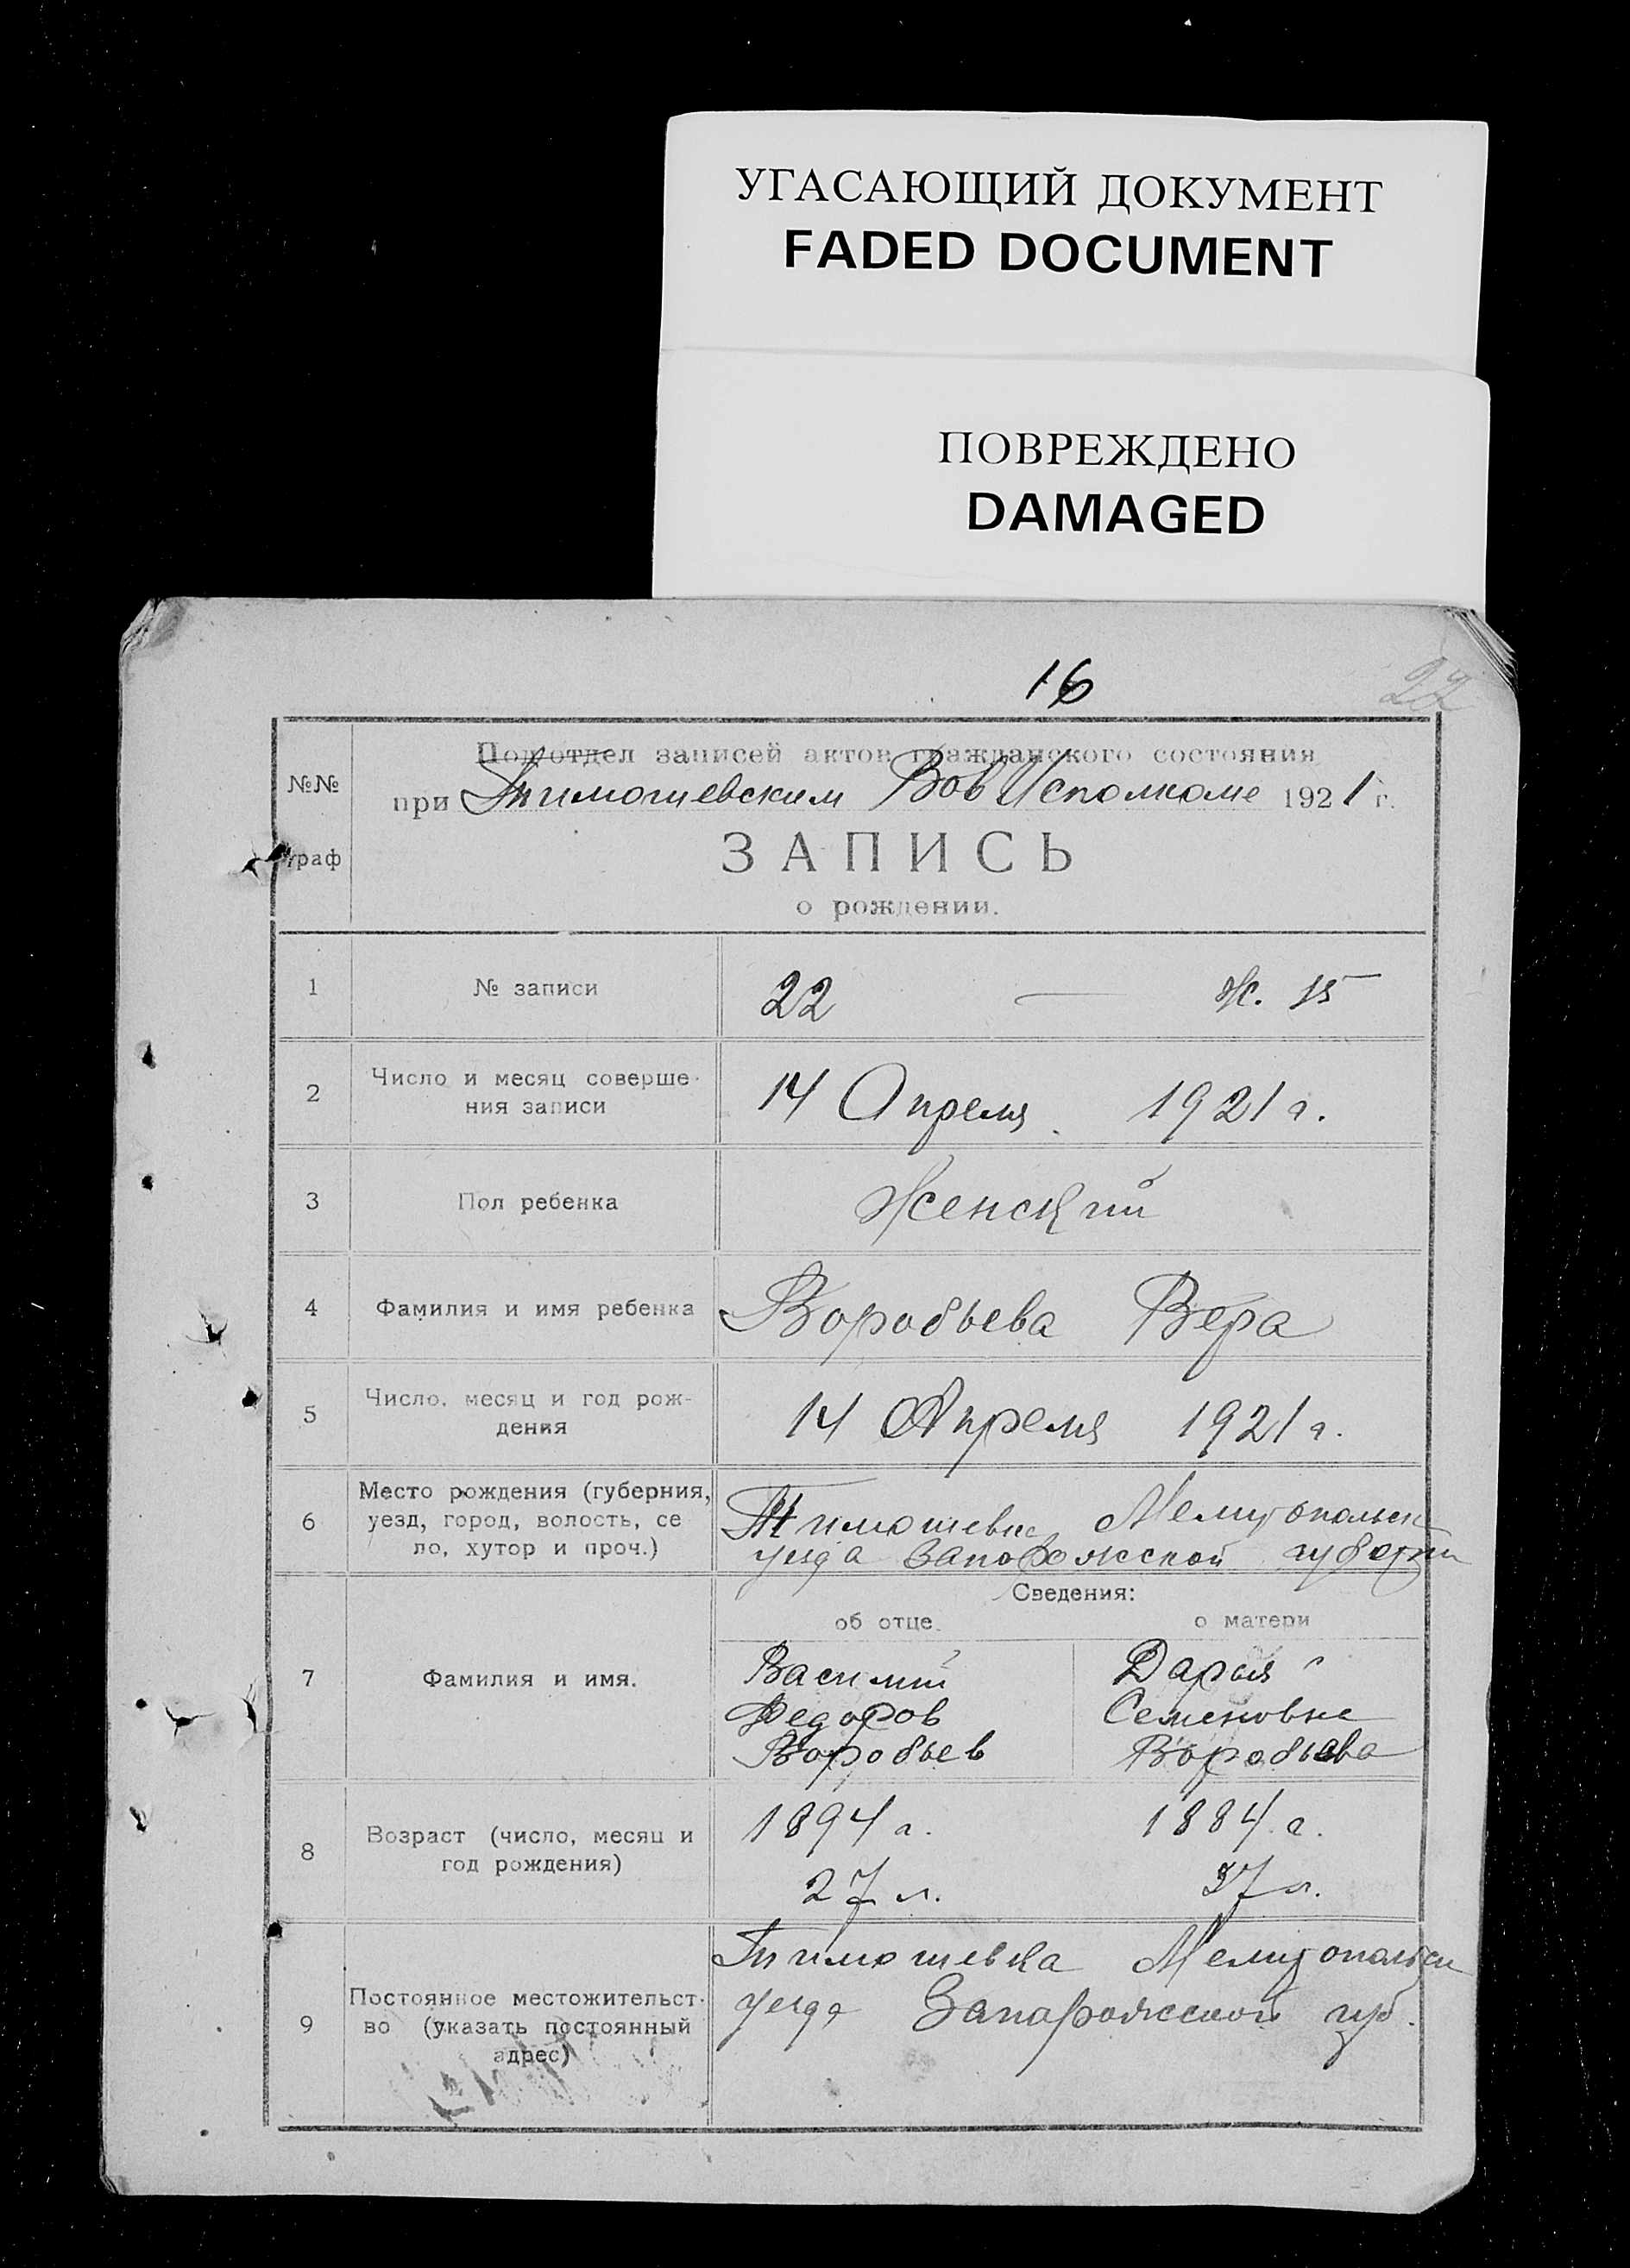 УГАСАЮЩИЙ ДОКУМЕНТ
FADED DOCUMENT
ПОВРЕЖДЕНО
DAMAGED
16
22
Подотдел записей актов гражданского состояния
при Тимошевским Вов Исполкоме 1921 г.
№№
граф
ЗАПИСЬ
о рождении.
1 № записи 22 — Ж. 15
2 Число и месяц соверше-
ния записи 14 Апреля 1921 г.
3 Пол ребенка Женский
4 Фамилия и имя ребенка Воробьева Вера
5 Число, месяц и год рож-
дения 14 Апреля 1921 г.
6 Место рождения (губерния,
уезд, город, волость, се
ло, хутор и проч.)
Тимошевка Мелитопольск
уезда Запорожской губернии
Сведения:
об отце. о матери
7 Фамилия и имя.
Василий Дарья
Федоров Семеновна
Воробьев Воробьева
8 Возраст (число, месяц и
год рождения)
1894 г. 1884 г.
27 л. 37 л.
9 Постоянное местожительст-
во (указать постоянный
адрес)
Тимошевка Мелитопольск
уезда Запорожской губ.